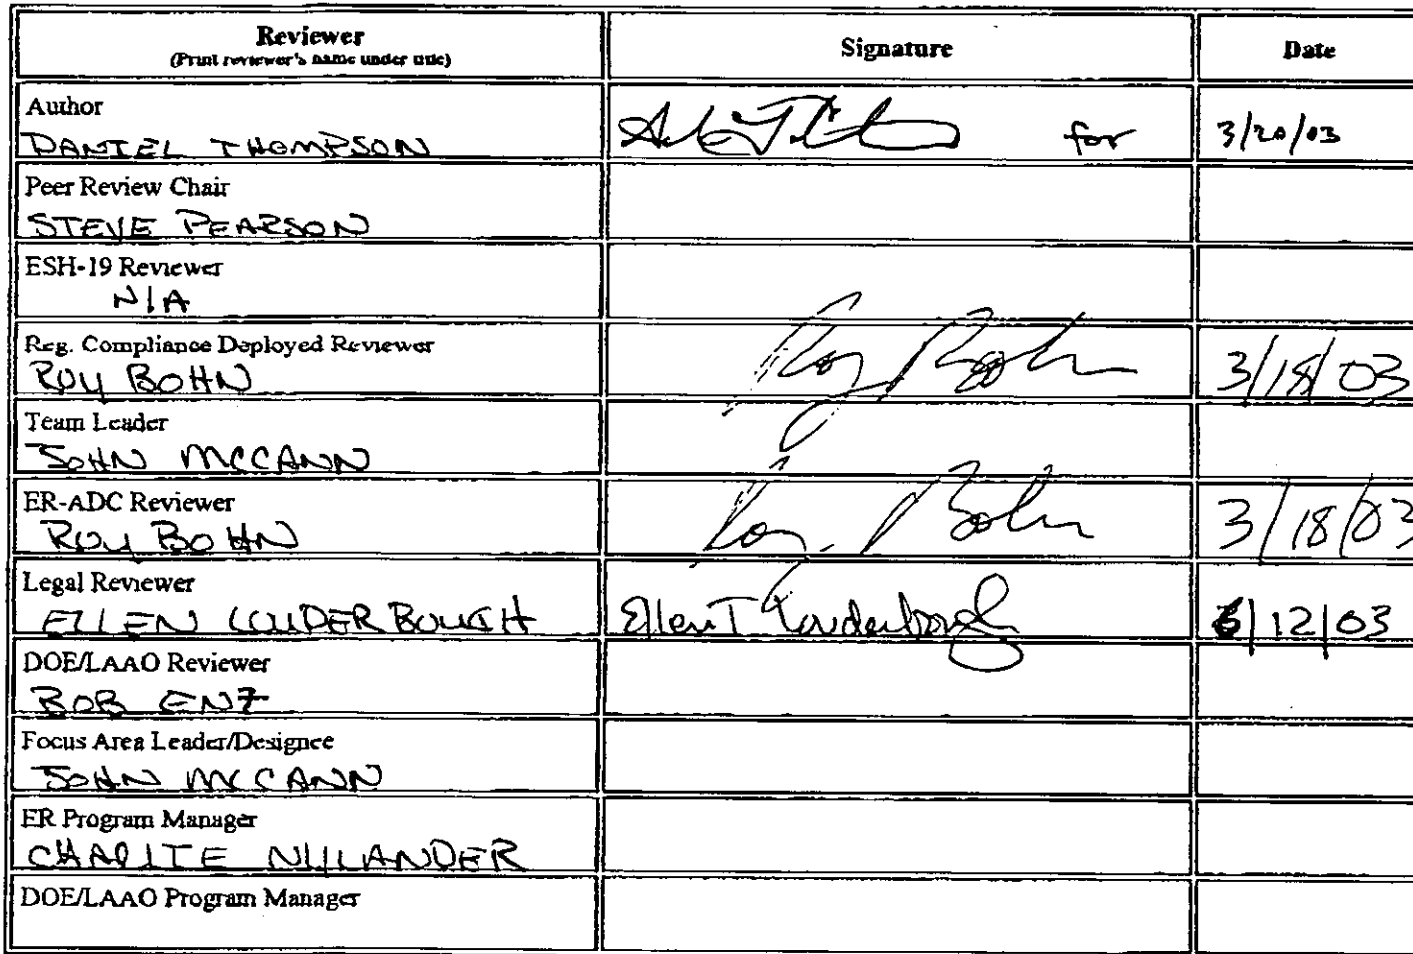 Reviewer Signature Date
(Print reviewer's name under title)
Author
DANIEL THOMPSON for 3/20/03
Peer Review Chair
STEVE PEARSON
ESH-19 Reviewer
N/A
Reg. Compliance Deployed Reviewer
ROY BOHN Roy Bohn 3/18/03
Team Leader
JOHN MCCANN
ER-ADC Reviewer
ROY BOHN Roy Bohn 3/18/03
Legal Reviewer
ELLEN LOUDERBOUGH Ellen T Louderbough /12/03
DOE/LAAO Reviewer
BOB ENZ
Focus Area Leader/Designee
JOHN MCCANN
ER Program Manager
CHARLIE NYLANDER
DOE/LAAO Program Manager